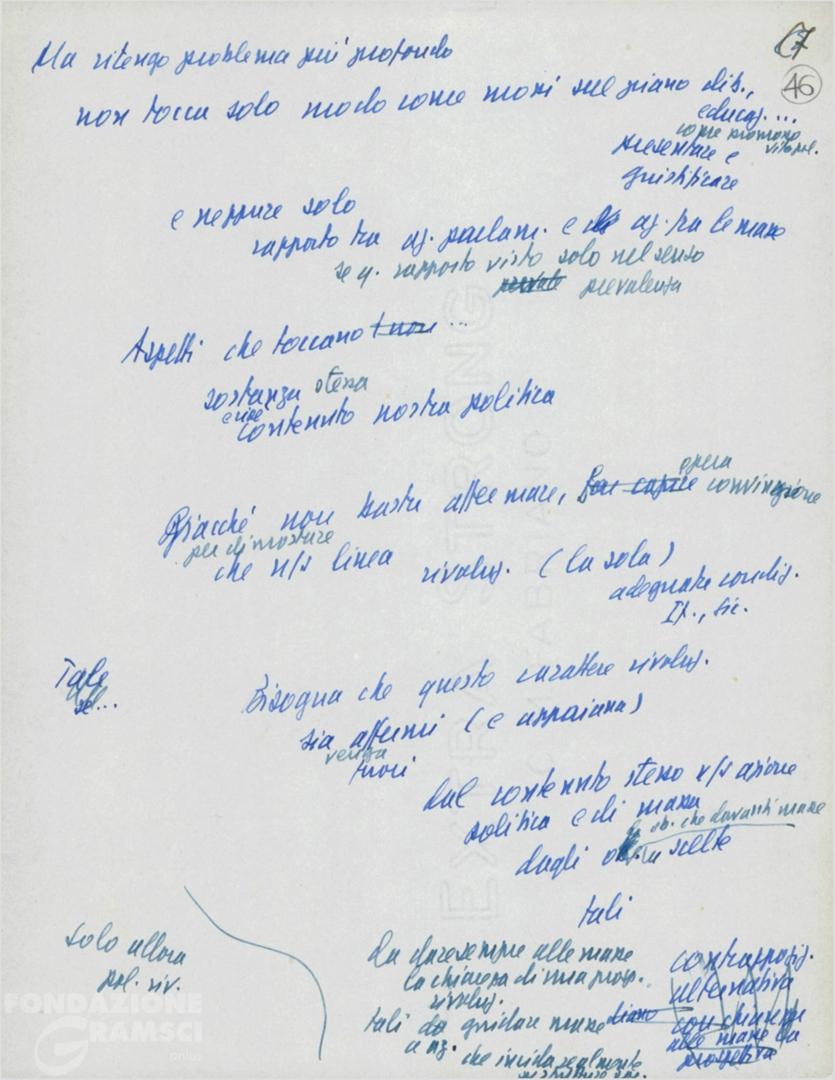 17
46
Ma ritengo problema più profondo
non tocca solo modo come noi sul piano dib.,
educaz. ...
vita pol.
presentare e
giustificare
e neppure solo
rapporto tra az. parlam. e az. tra le masse
se q. rapporto visto solo nel senso
prevalenza
Aspetti che toccano ...
sostanza stessa
contenuto nostra politica
Giacché non basta affermare, opera
convinzione
per dimostrare
che n/s linea rivoluz. (la sola)
adeguata condiz.
It., Sic.
Tale
se...
Bisogna che questo carattere rivoluz.
sia affermi (e appaiana)
venga
fuori
dal contenuto stesso n/s azione
politica e di massa
ob. che davanti masse
dagli scelte
tali
solo allora
pol. riv.
da dare sempre alle masse
la chiarezza di una prosp.
rivoluz.
tali da guidare masse
a az. che incida realmente
contrapposiz.
alternativa
con chiarezza
alle masse la
prospettiva
EXTRA STRONG
FABRIANO
FONDAZIONE
GRAMSCI
onlus